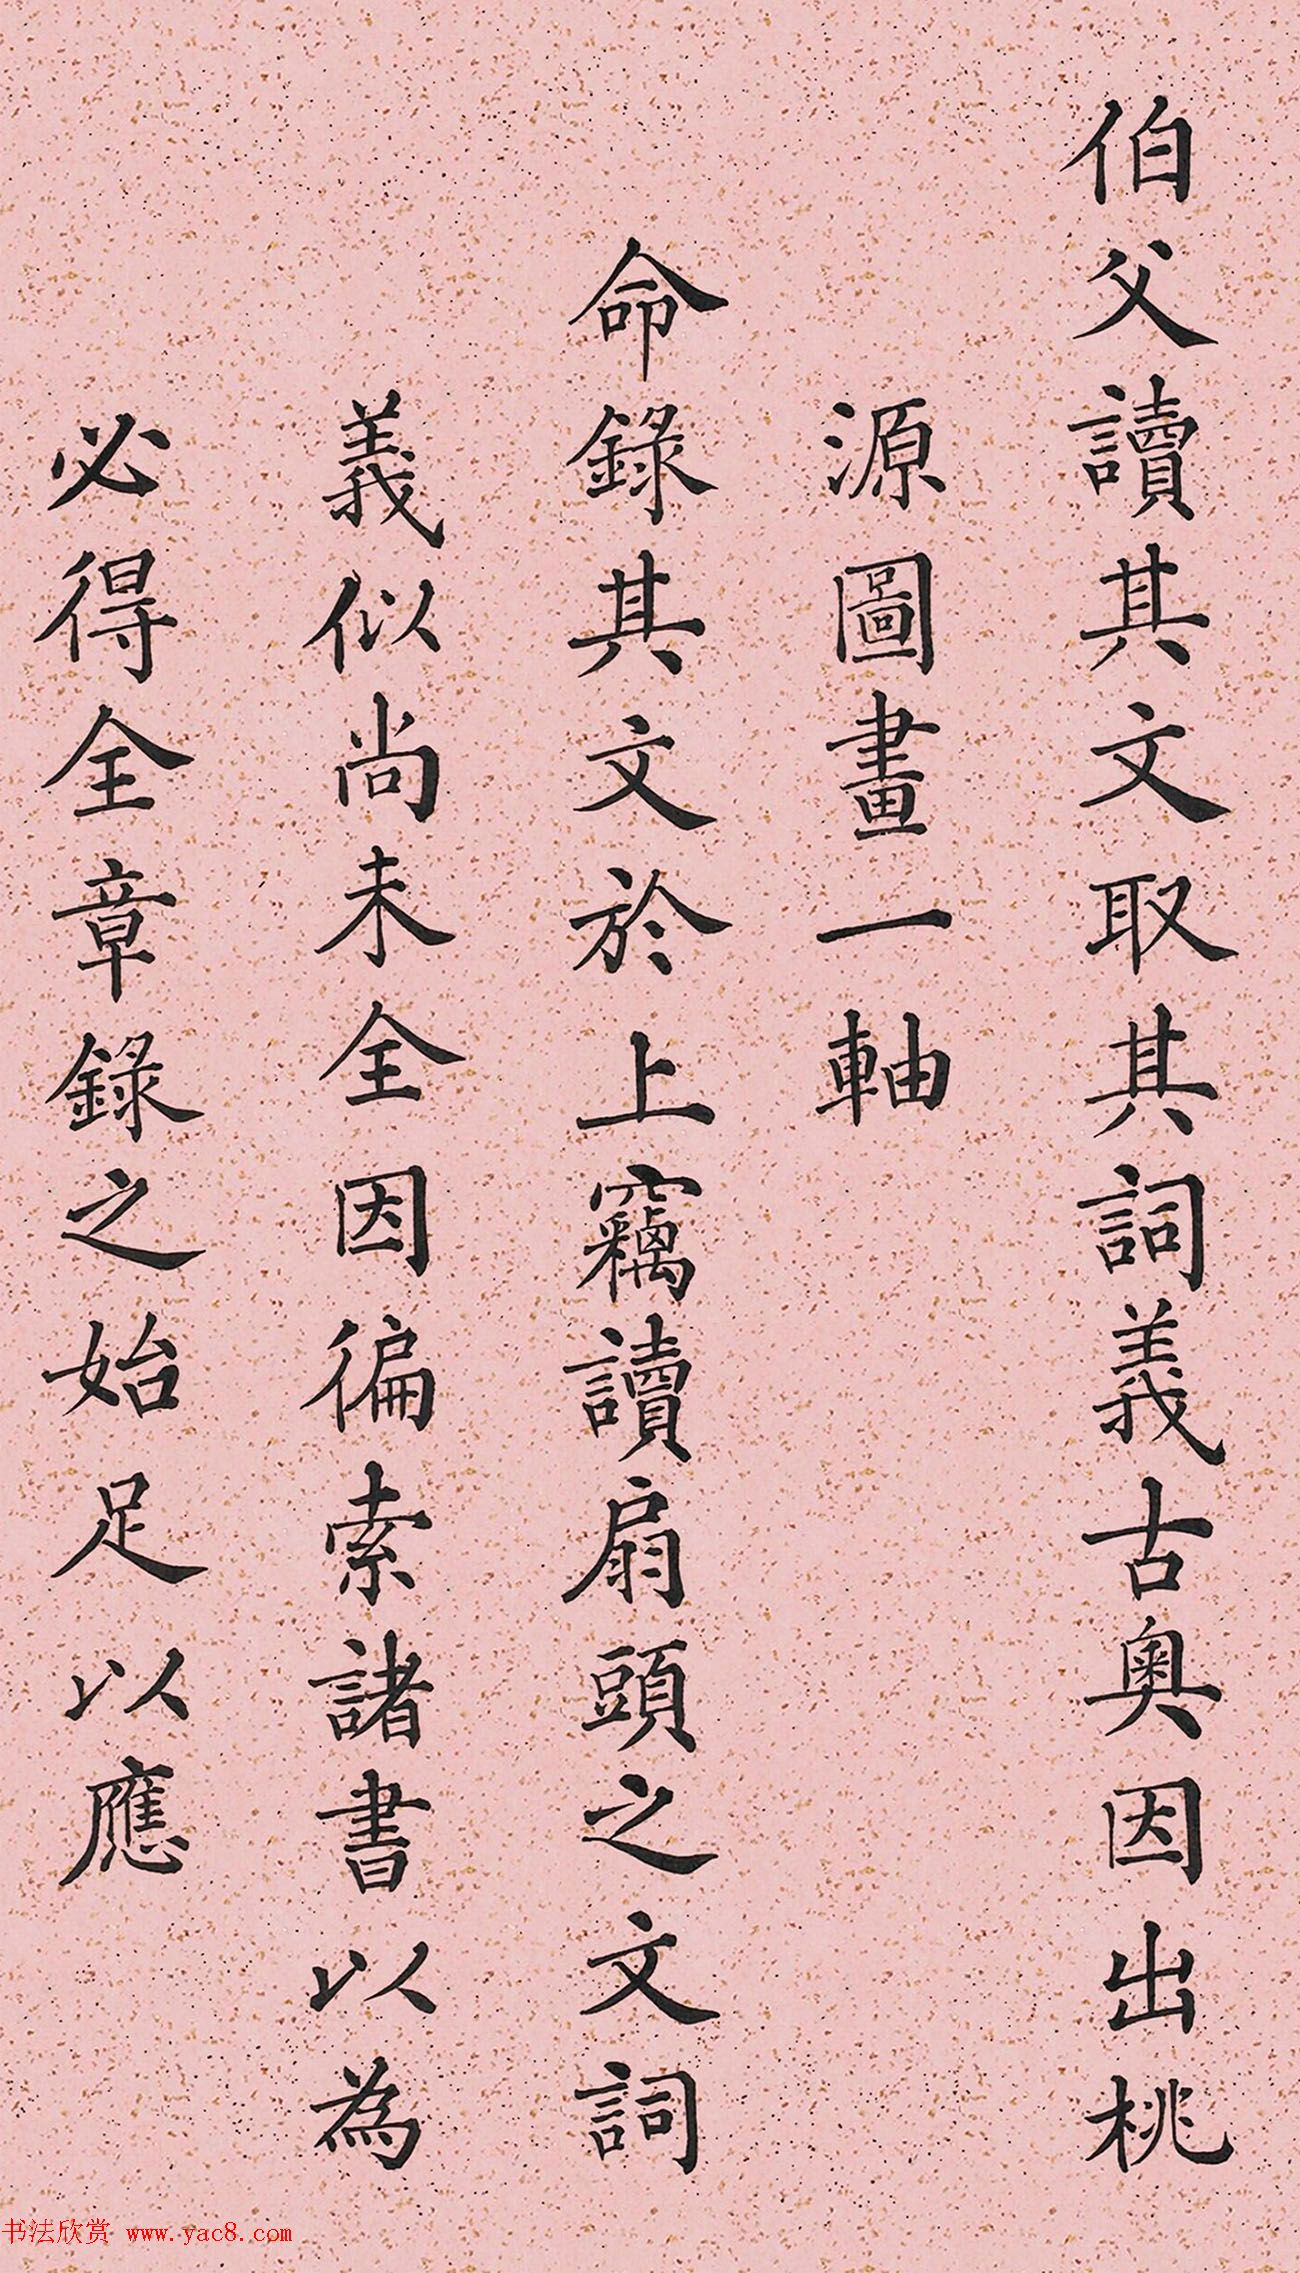 伯父讀其文取其詞義古奧因出桃
源圖畫一軸
命錄其文於上竊讀扇頭之文詞
義似尚未全因徧索諸書以為
必得全章錄之始足以應
书法欣赏 www.yac8.com